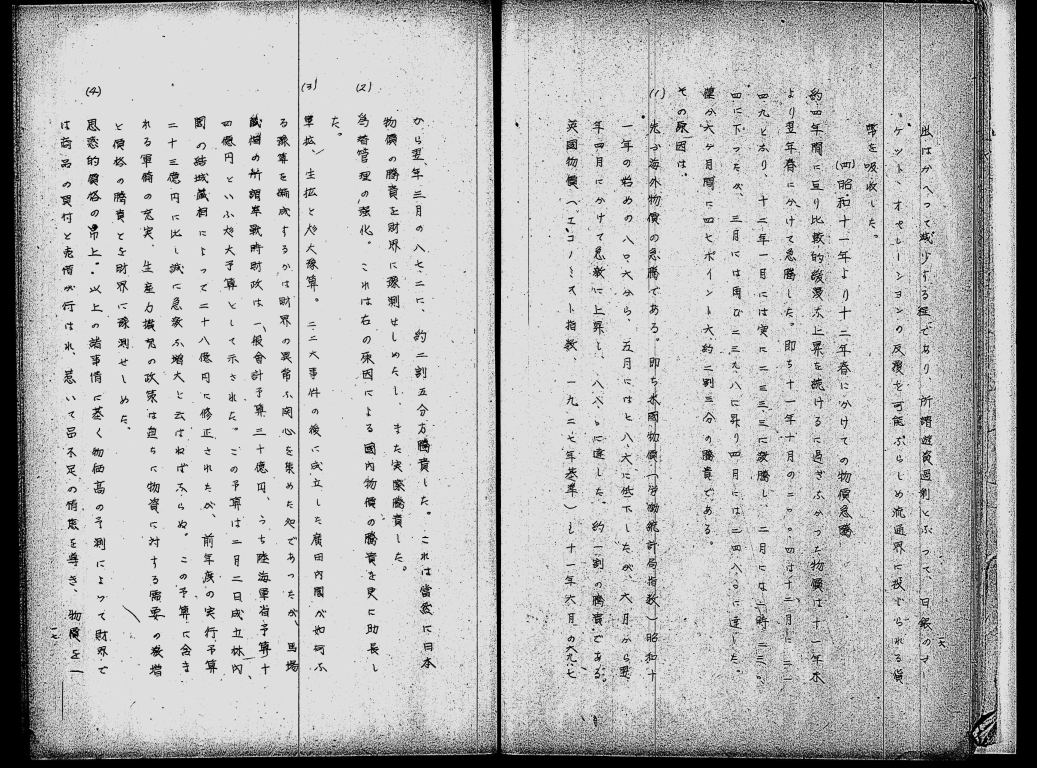 出はかへつて減少する位であり、所謂遊資過剰となつて、日銀のマー
ケツト・オペレーシヨンの反覆を可能ならしめ流通界に投ぜられる貨
幣を吸收した。
(四)昭和十一年より十二年春にかけての物價急騰
約四年間に亘り比較的緩漫な上昇を続けるに過ぎなかつた物價は十一年末
より翌年春にかけて急騰した。即ち十一年十月の二〇〇.四は十二月に二一
四九となり、十二年一月には実に二三三.三に激騰し、二月には一時二三〇.
四に下つたが、三月には再び二三九.八に昇り四月には二四八.〇に達した。
僅か六ヶ月間に四七ポイント大約二割三分の騰貴である。
その原因は、
(1) 先づ海外物價の急騰である。即ち米國物價(労働統計局指数)昭和十
一年の始めの八〇.六から、五月には七八.六に低下したが、六月から翌
年四月にかけて急激に上昇し、八八.〇に達した。約一割の騰貴である。
英國物價(エコノミスト指数、一九二七年基準)も十一年六月の六九.七
から翌年三月の八七.二に、約二割五分方騰貴した。これは當然に日本
物價の騰貴を財界に豫測せしめたし、また実際騰貴した。
(2) 為替管理の強化。これは右の原因による國内物價の騰貴を更に助長し
た。
(3) 軍拡、生拡と尨大豫算。二二六事件の後に成立した廣田内閣が如何な
る豫算を編成するかは財界の異常な関心を集めた処であつたが、馬場
藏相の所謂準戰時財政は、一般會計予算三十億円、うち陸海軍省予算十
四億円といふ尨大予算として示された。この予算は二月二日成立林内
閣の結城藏相によつて二十八億円に修正されたが、前年度の実行予算
二十三億円に比し誠に急激な増大と云はねばならぬ。この予算に含ま
れる軍備の充実、生産力擴充の政策は直ちに物資に対する需要の激増
と價格の騰貴とを財界に豫測せしめた。
(4) 思惑的價格の吊上。以上の諸事情に基く物価高の予測によつて財界で
は商品の買付と売惜が行はれ、惹いて品不足の情態を導き、物價を一